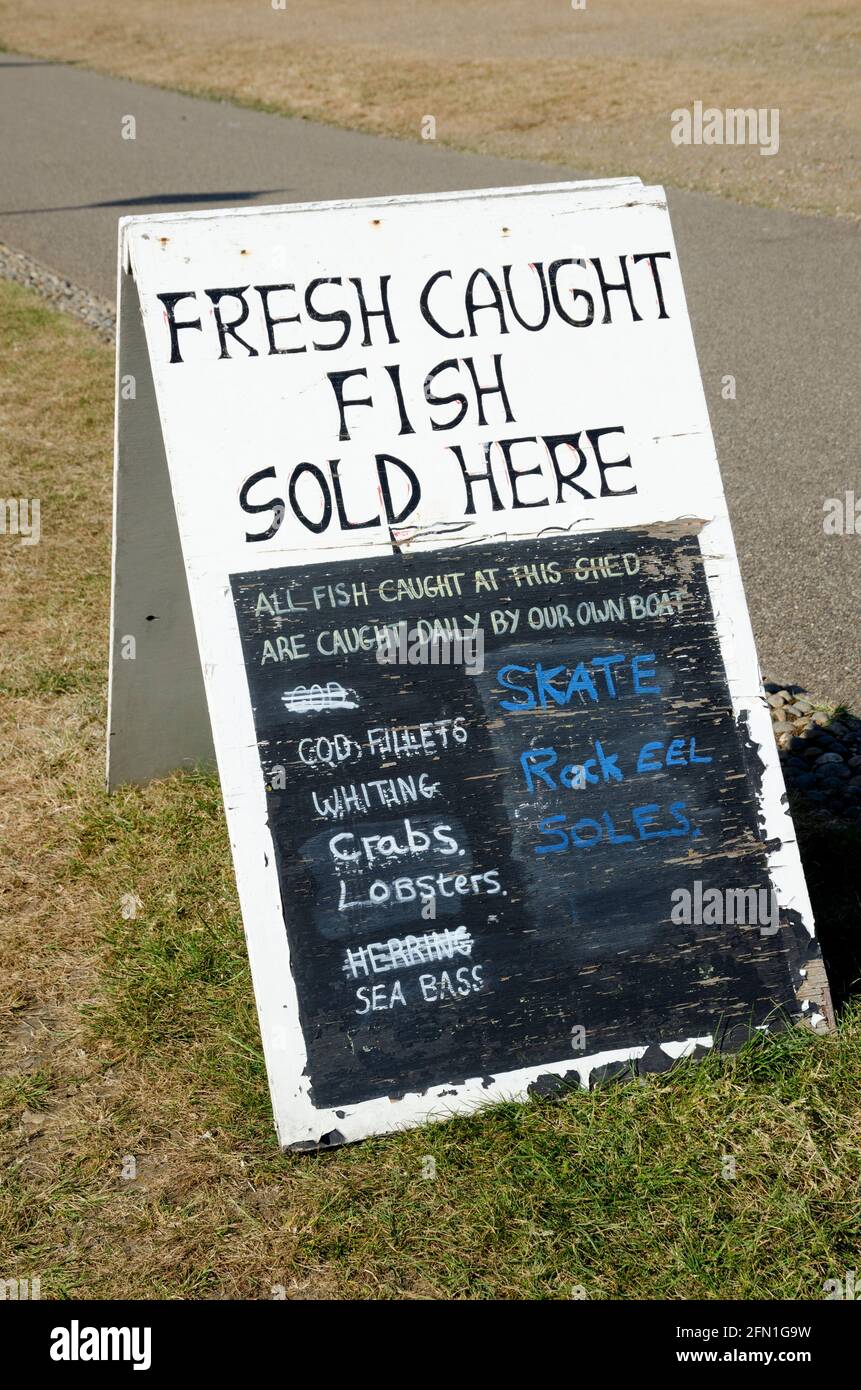 FRESH CAUGHT
FISH
SOLD HERE
ALL FISH CAUGHT AT THIS SHED
ARE CAUGHT DAILY BY OUR OWN BOAT
COD
COD FILLETS
WHITING
Crabs.
LOBSTERS.
HERRING
SEA BASS
SKATE
Rock EEL
SOLES.
alamy
Image ID: 2FN1G9W
www.alamy.com